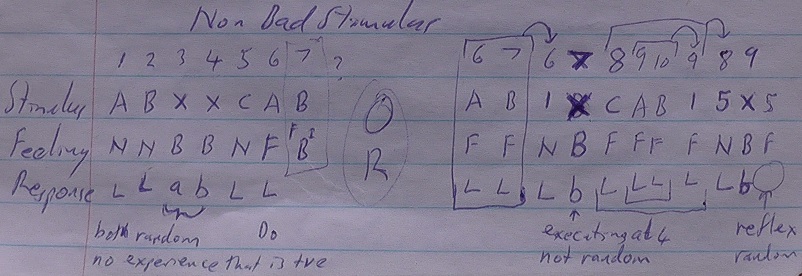 Non Bad Stimular
1 2 3 4 5 6 7 ? 6 7 6 8 9 10 9 8 9
Stimulus A B X X C A B A B 1 C A B 1 5 X 5
Feeling N N B B N F F B I F F N B F F F F N B F
OR
Response L L a b L L L L L b L L L L L b
both random Do executing at 4 reflex
no experience that is +ve not random random